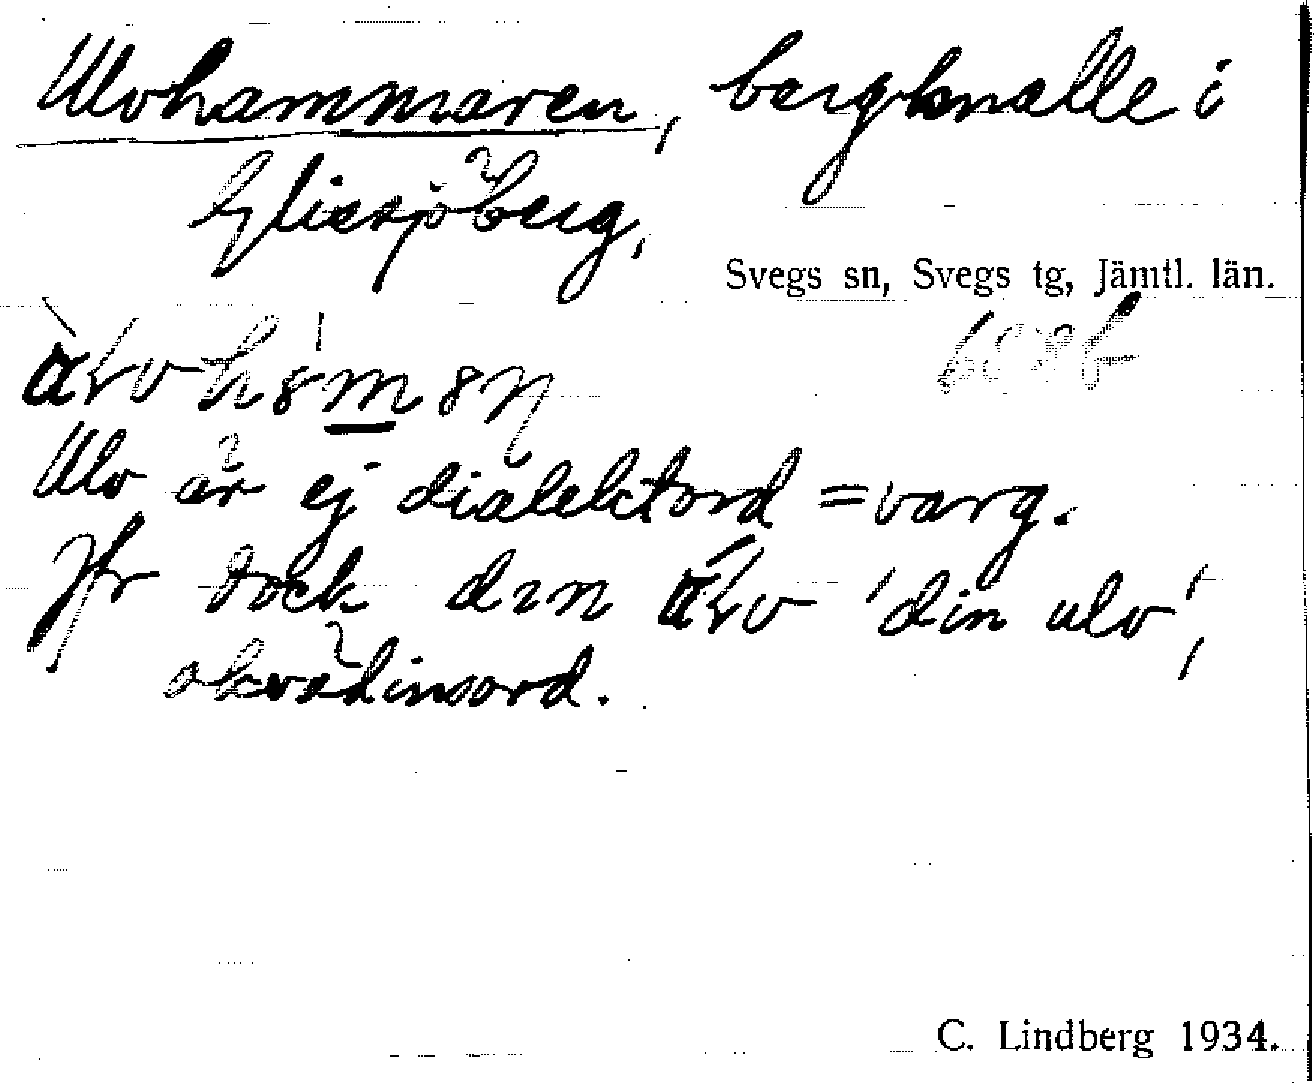 Ulvhammaren, bergknalle i
Glissjöberg,
Svegs sn, Svegs tg, Jämtl. län.
Ulv är ej dialektord = varg.
Jfr dock den 'din ulv',
okvädinsord.
C. Lindberg 1934.